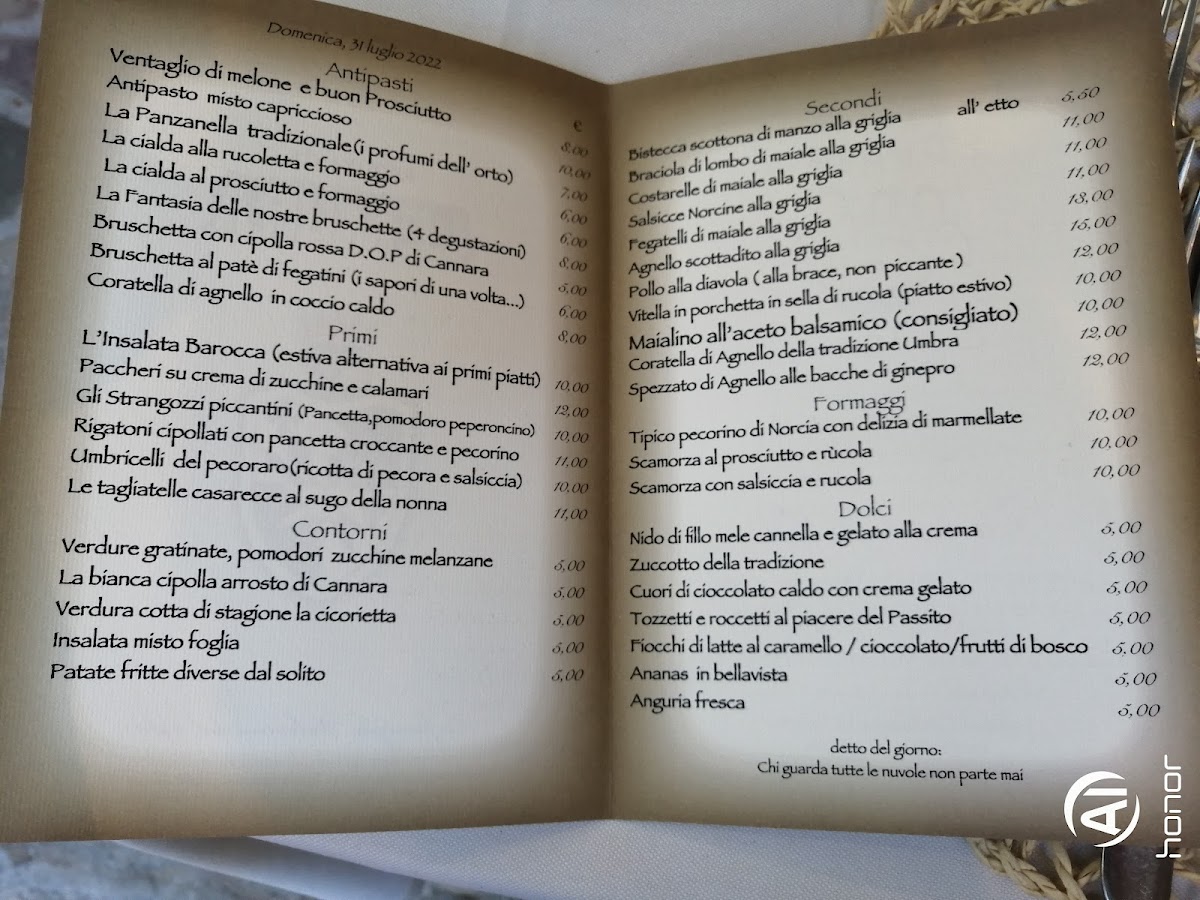 Domenica, 31 luglio 2022
Antipasti
€
Ventaglio di melone e buon Prosciutto 8,00
Antipasto misto capriccioso 10,00
La Panzanella tradizionale (i profumi dell' orto) 7,00
La cialda alla rucoletta e formaggio 6,00
La cialda al prosciutto e formaggio 6,00
La Fantasia delle nostre bruschette (4 degustazioni) 8,00
Bruschetta con cipolla rossa D.O.P di Cannara 5,00
Bruschetta al patè di fegatini (i sapori di una volta...) 6,00
Coratella di agnello in coccio caldo 8,00
Primi
L'Insalata Barocca (estiva alternativa ai primi piatti) 10,00
Paccheri su crema di zucchine e calamari 12,00
Gli Strangozzi piccantini (Pancetta,pomodoro peperoncino) 10,00
Rigatoni cipollati con pancetta croccante e pecorino 11,00
Umbricelli del pecoraro(ricotta di pecora e salsiccia) 10,00
Le tagliatelle casarecce al sugo della nonna 11,00
Contorni
Verdure gratinate, pomodori zucchine melanzane 5,00
La bianca cipolla arrosto di Cannara 5,00
Verdura cotta di stagione la cicorietta 5,00
Insalata misto foglia 5,00
Patate fritte diverse dal solito 5,00
Secondi
Bistecca scottona di manzo alla griglia all' etto 5,50
Braciola di lombo di maiale alla griglia 11,00
Costarelle di maiale alla griglia 11,00
Salsicce Norcine alla griglia 11,00
Fegatelli di maiale alla griglia 13,00
Agnello scottadito alla griglia 15,00
Pollo alla diavola ( alla brace, non piccante ) 12,00
Vitella in porchetta in sella di rucola (piatto estivo) 10,00
Maialino all'aceto balsamico (consigliato) 10,00
Coratella di Agnello della tradizione Umbra 12,00
Spezzato di Agnello alle bacche di ginepro 12,00
Formaggi
Tipico pecorino di Norcia con delizia di marmellate 10,00
Scamorza al prosciutto e rùcola 10,00
Scamorza con salsiccia e rucola 10,00
Dolci
Nido di fillo mele cannella e gelato alla crema 5,00
Zuccotto della tradizione 5,00
Cuori di cioccolato caldo con crema gelato 5,00
Tozzetti e roccetti al piacere del Passito 5,00
Fiocchi di latte al caramello / cioccolato/frutti di bosco 5,00
Ananas in bellavista 5,00
Anguria fresca 5,00
detto del giorno:
Chi guarda tutte le nuvole non parte mai
AI
honor